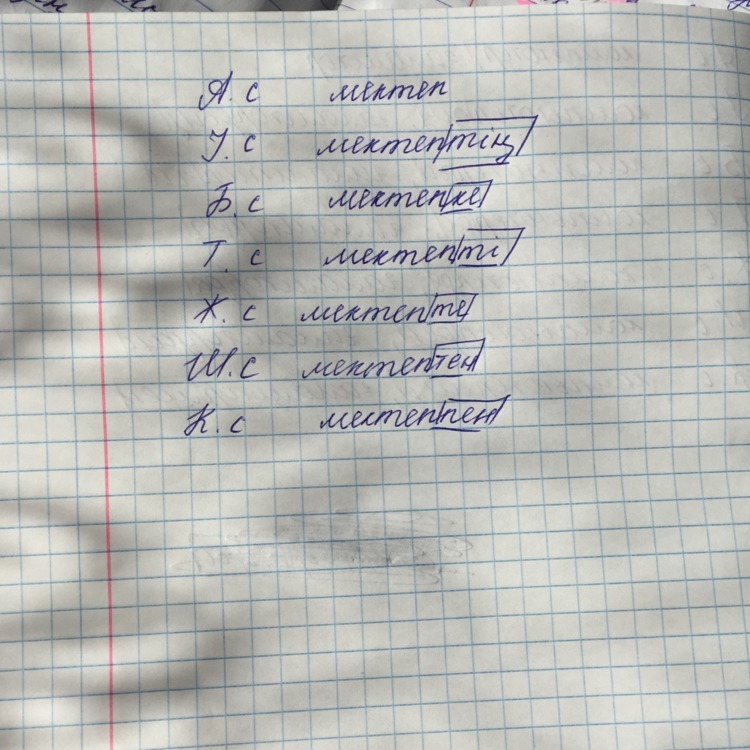 А. с мектеп
І. с мектептің
Б. с мектепке
Т. с мектепті
Ж. с мектепте
Ш. с мектептен
К. с мектеппен